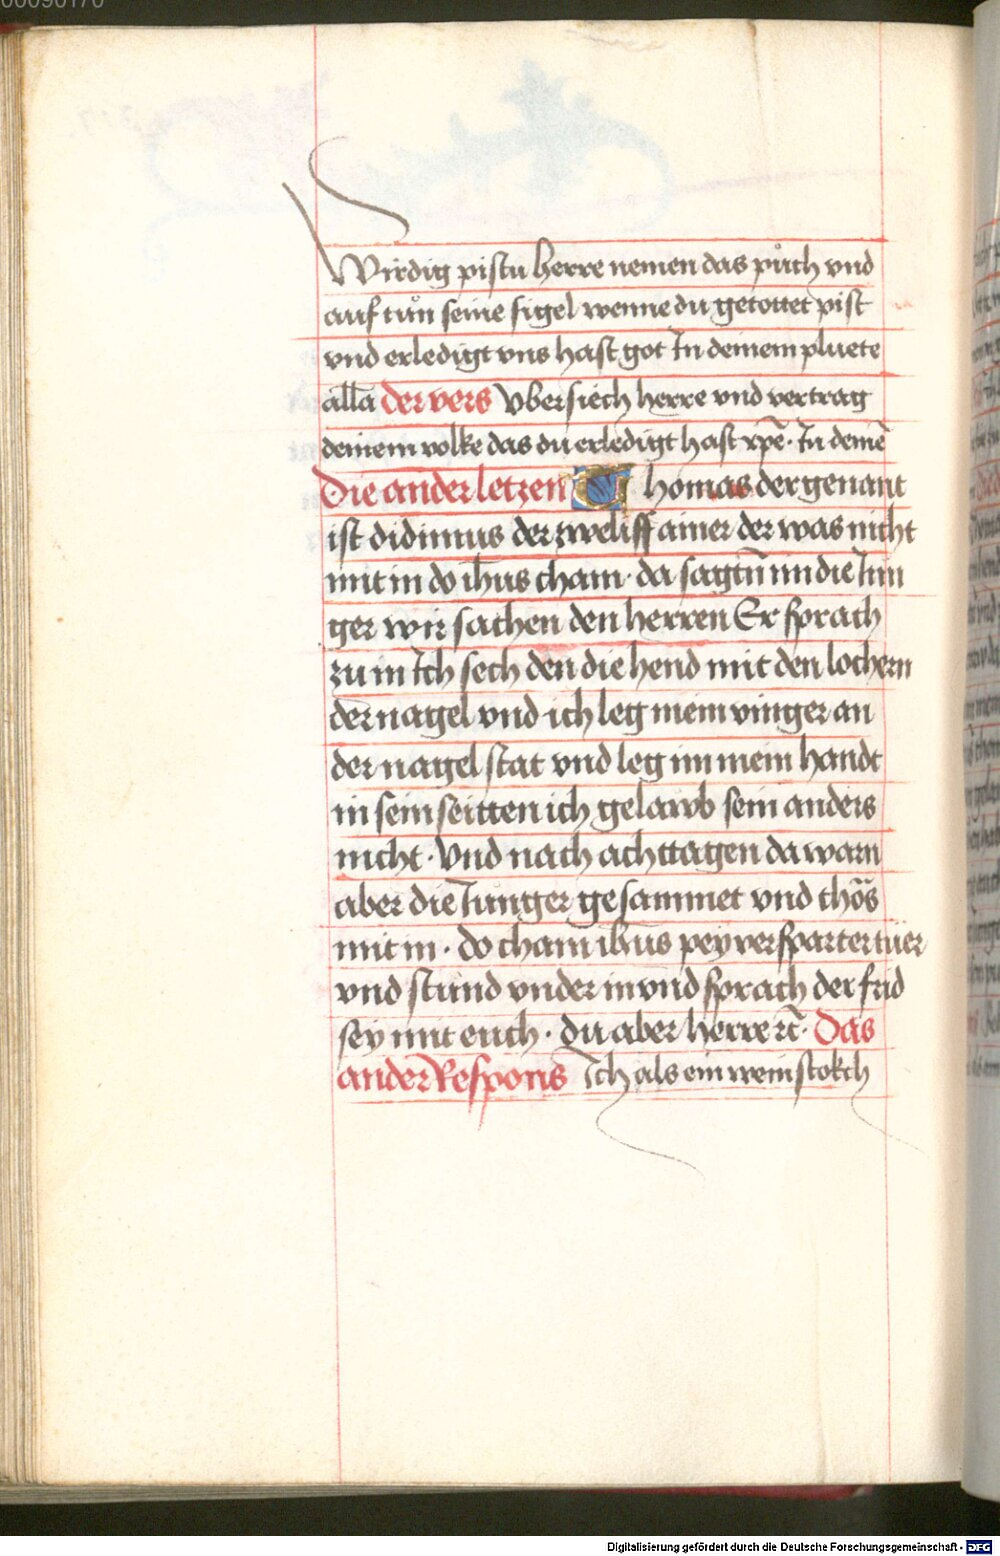 00090170
Wirdig pistu herre nemen das půch vnd
auf tůn seine sigel wenne du getottet pist
vnd erledigt vns hast got In deinem pluete
all̄a der vers Vbersiech herre vnd vertrag
deinem volke das du erledigt hast xp̄e · In deinē
Die ander letzen Thomas der genant
ist didimus der zweliff ainer der was nicht
mit in do ih̄us cham · da sagtn̄ im die Jun
ger wir sachen den herren Er sprach
zu in Ich sech den die hend mit den lochern
der nagel vnd ich leg mein vinger an
der nagel stat vnd leg im mein handt
in sein seitten ich gelawb sein anders
nicht · Vnd nach acht tagen da warn
aber die Junger gesammet vnd thōs
mit in · do cham ih̄us pey versparter tüer
vnd stund vnder in vnd sprach der frid
sey mit euch · du aber herre rc̄ · Das
ander Respons Ich als ein weinstokch
Digitalisierung gefördert durch die Deutsche Forschungsgemeinschaft - DFG